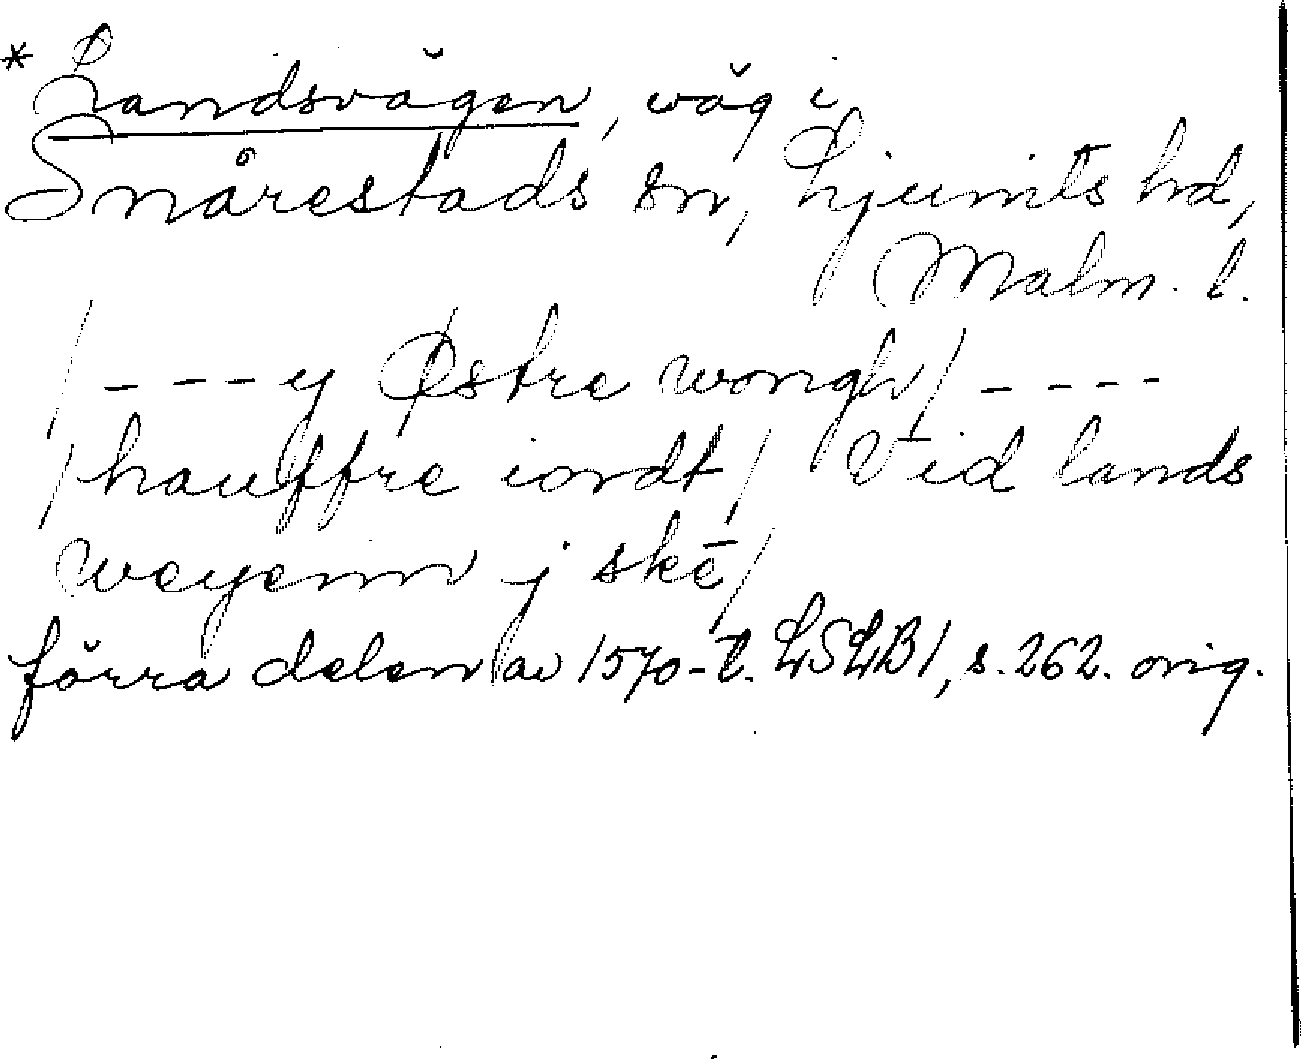 * Landsvägen, väg i
Snårestads sn, Ljunits hd,
Malm. l.
/ - - - y Østre wongh / - - - -
/ hauffre iordt / Vid lands
weyenn j skē /
förra delen av 1570-t. LSLB 1, s. 262. orig.